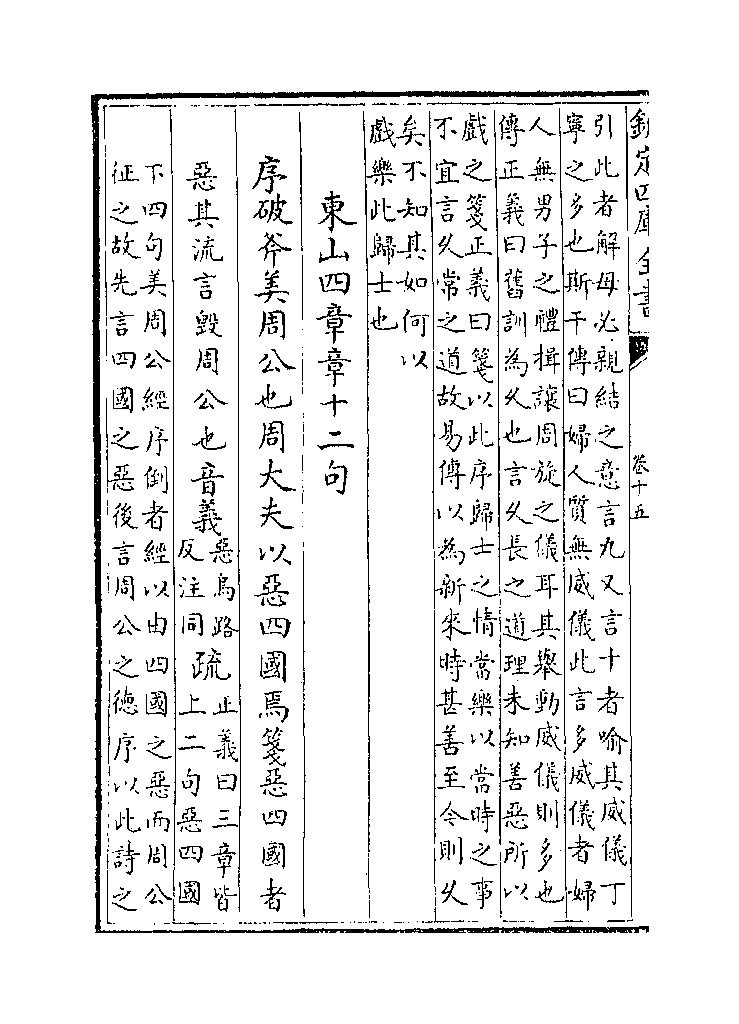 欽定四庫全書
卷十五
引此者解母必親結之意言九又言十者喻其威儀丁
寧之多也斯干傳曰婦人質無威儀此言多威儀者婦
人無男子之禮揖讓周旋之儀耳其舉動威儀則多也
傳正義曰舊訓為久也言久長之道理未知善惡所以
戲之箋正義曰箋以此序歸士之情當樂以當時之事
不宜言久常之道故易傳以為新來時甚善至今則久
矣不知其如何以
戲樂此歸士也
東山四章章十二句
序破斧美周公也周大夫以惡四國焉箋惡四國者
惡其流言毀周公也音義惡烏路
反注同疏正義曰三章皆
上二句惡四國
下四句美周公經序倒者經以由四國之惡而周公
征之故先言四國之惡後言周公之德序以此詩之